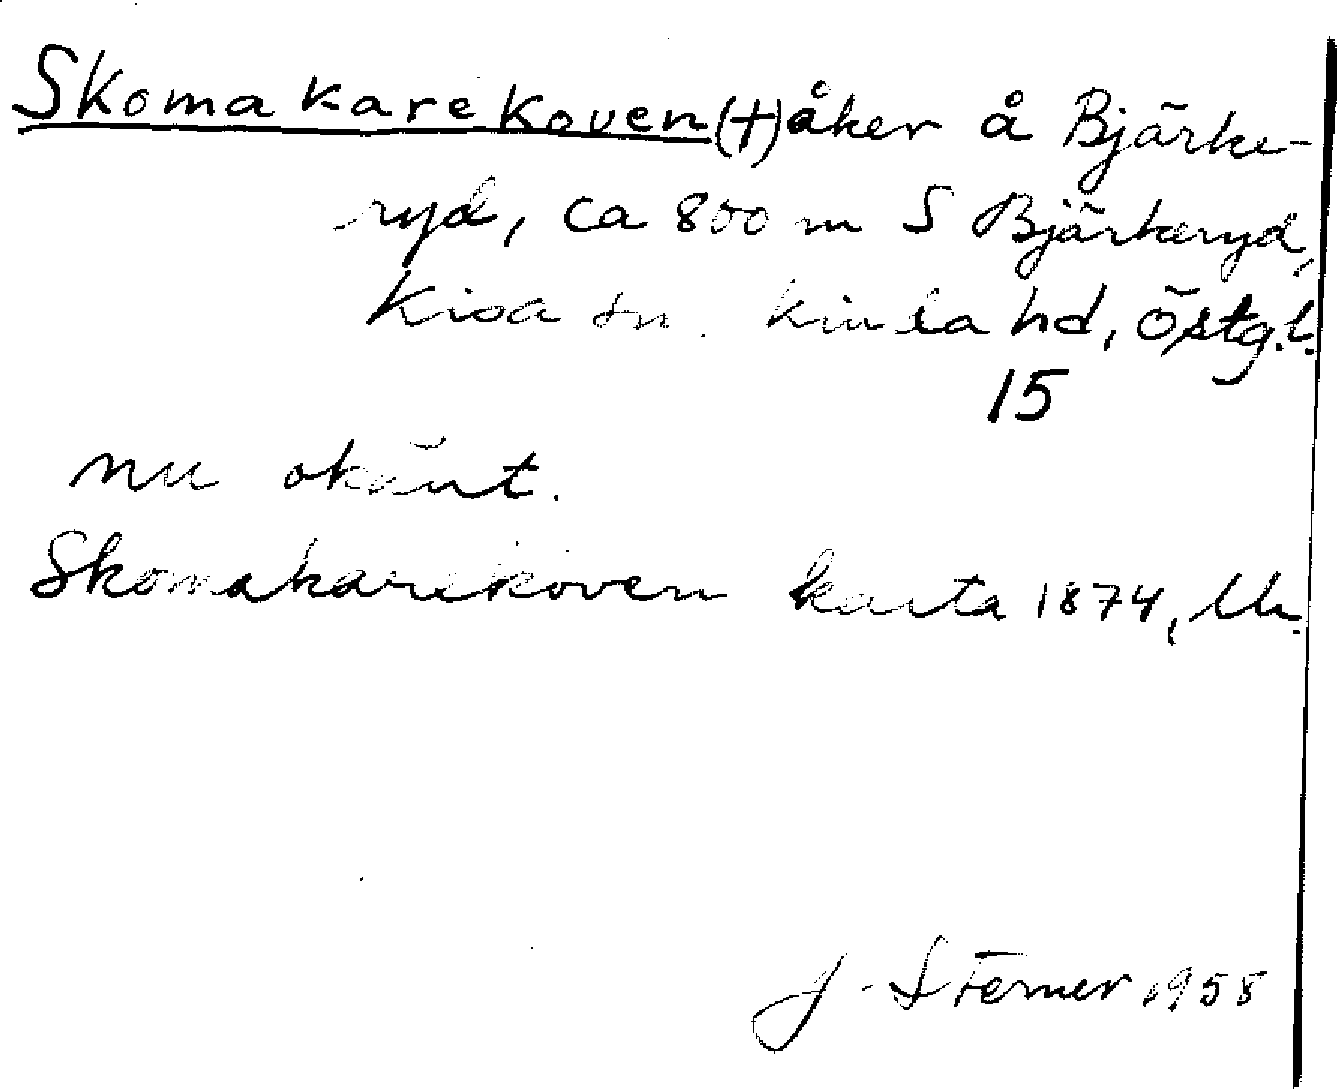 Skomakarekoven (†) åker å Bjärke-
ryd, ca 800 m S Bjärkeryd,
Kisa sn. kinda hd, Östg.l.
15
nu okänt.
Skomakarekoven karta 1874, Uk.
J. Sterner 1958